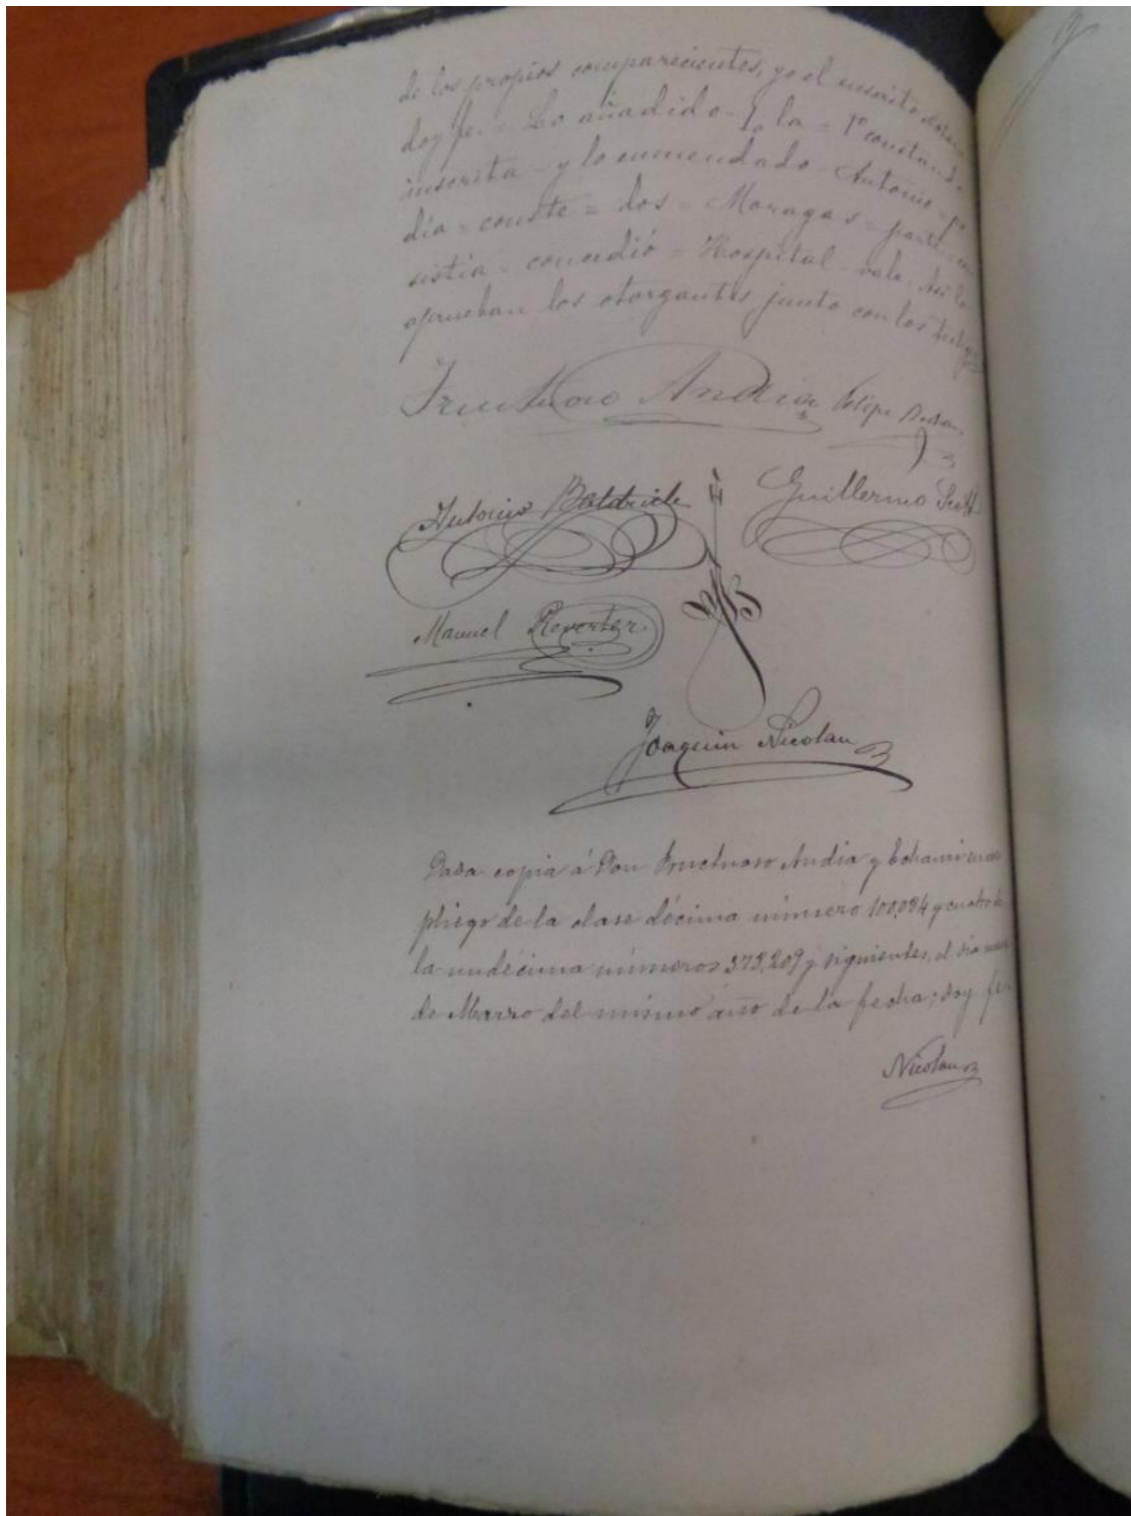 de los propios comparecientes, yo el infrascrito
doy fe. = Lo añadido. la = 1º constando
inscrita = y lo enmendado Antonio = pº
día = conste = dos = Moragas = parte =
sistia = concedió = Hospital vale. Así lo
aprueban los otorgantes junto con los testigos
Fructuoso Andia Felipe
Antonio Baldrich
Guillermo
Manuel Reverter
Joaquin Nicolau
Dada copia á Don Fructuoso Andia y en un
pliego de la clase décima número 100,094 y cuatro de
la undécima números 378,209 y siguientes, el dia
de Marzo del mismo año de la fecha; doy fe
Nicolau